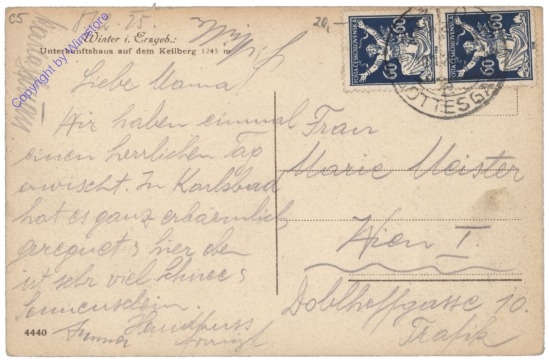 C5
20,-
Winter i. Erzgeb.:
Unterkunftshaus auf dem Keilberg 1245 m
Copyright by Winstore
Liebe Mama!
Wir haben einmal
einen herrlichen Tag
erwischt. In Karlsbad
hat es ganz erbärmlich
geregnet & hier oben
ist sehr viel Schnee &
Sonnenschein.
Handkuss
4440
60 60
GOTTESGAB
Frau
Marie Meister
Wien I.
Doblhoffgasse 10.
Trafik